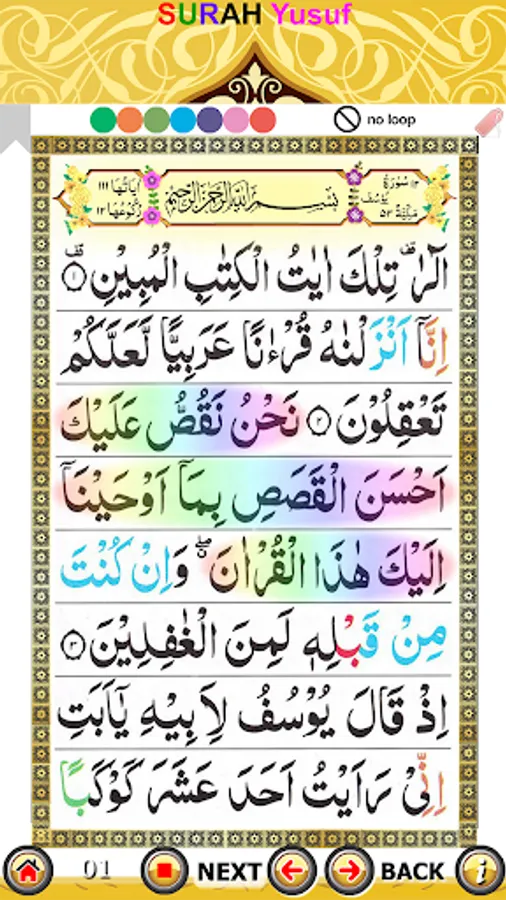 SURAH Yusuf
no loop
اٰيَاتُهَا ١١١
رُكُوْعُهَا ١٢
بِسْمِ اللّٰهِ الرَّحْمٰنِ الرَّحِيْمِ
١٢ سُوْرَةُ
يُوْسُفَ
مَكِّيَّةٌ ٥٣
الٓرٰ ۫ تِلْكَ اٰيٰتُ الْكِتٰبِ الْمُبِيْنِ ۫ ١
اِنَّاۤ اَنْزَلْنٰهُ قُرْءٰنًا عَرَبِيًّا لَّعَلَّكُمْ
تَعْقِلُوْنَ ٢ نَحْنُ نَقُصُّ عَلَيْكَ
اَحْسَنَ الْقَصَصِ بِمَاۤ اَوْحَيْنَاۤ
اِلَيْكَ هٰذَا الْقُرْاٰنَ ۖ وَاِنْ كُنْتَ
مِنْ قَبْلِهٖ لَمِنَ الْغٰفِلِيْنَ ٣
اِذْ قَالَ يُوْسُفُ لِاَبِيْهِ يٰۤاَبَتِ
اِنِّىْ رَاَيْتُ اَحَدَ عَشَرَ كَوْكَبًا
01 NEXT BACK i